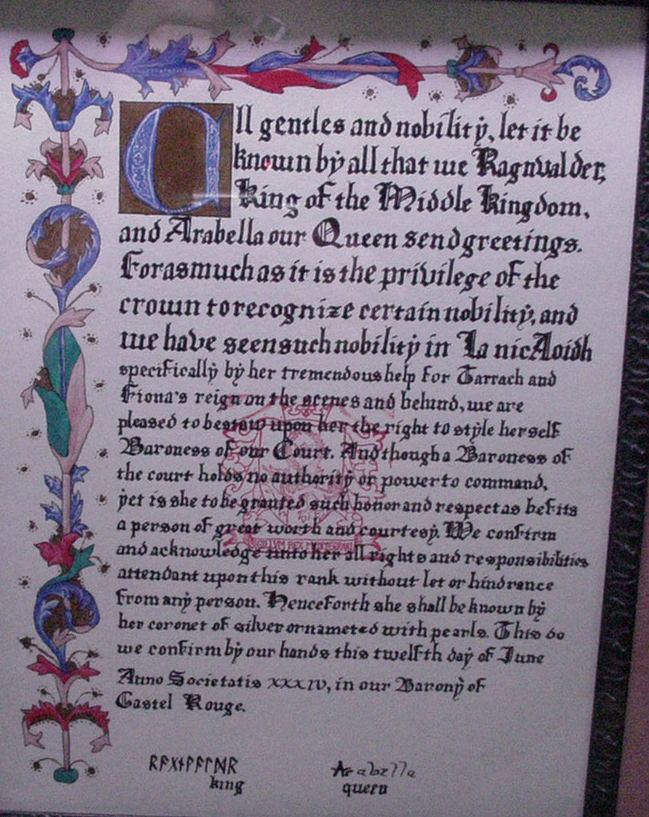 All gentles and nobility, let it be
known by all that we Ragnvalder,
King of the Middle Kingdom,
and Arabella our Queen send greetings.
Forasmuch as it is the privilege of the
crown to recognize certain nobility, and
we have seen such nobility in Ia nicAoidh
specifically by her tremendous help for Tarrach and
Fiona's reign on the scenes and behind, we are
pleased to bestow upon her the right to style herself
Baroness of our Court. And though a Baroness of
the court holds no authority or power to command,
yet is she to be granted such honor and respect as befits
a person of great worth and courtesy. We confirm
and acknowledge unto her all rights and responsibilities
attendant upon this rank without let or hindrance
from any person. Henceforth she shall be known by
her coronet of silver ornameted with pearls. This do
we confirm by our hands this twelfth day of June
Anno Societatis xxxiv, in our Barony of
Castel Rouge.
Arabella
king queen